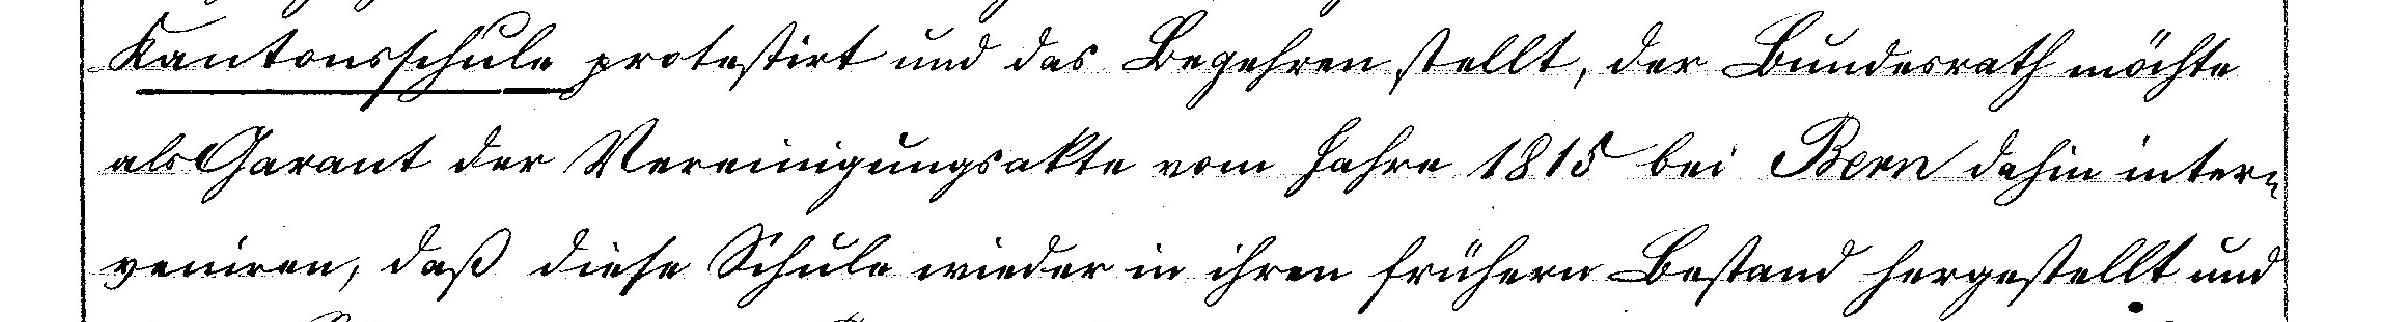 Kantonsschule protestirt und das Begehren stellt, der Bundesrath möchte
als Garant der Vereinigungsakte vom Jahre 1815 bei Bern dahin inter¬
veniren, daß diese Schule wieder in ihren frühern Bestand hergestellt und